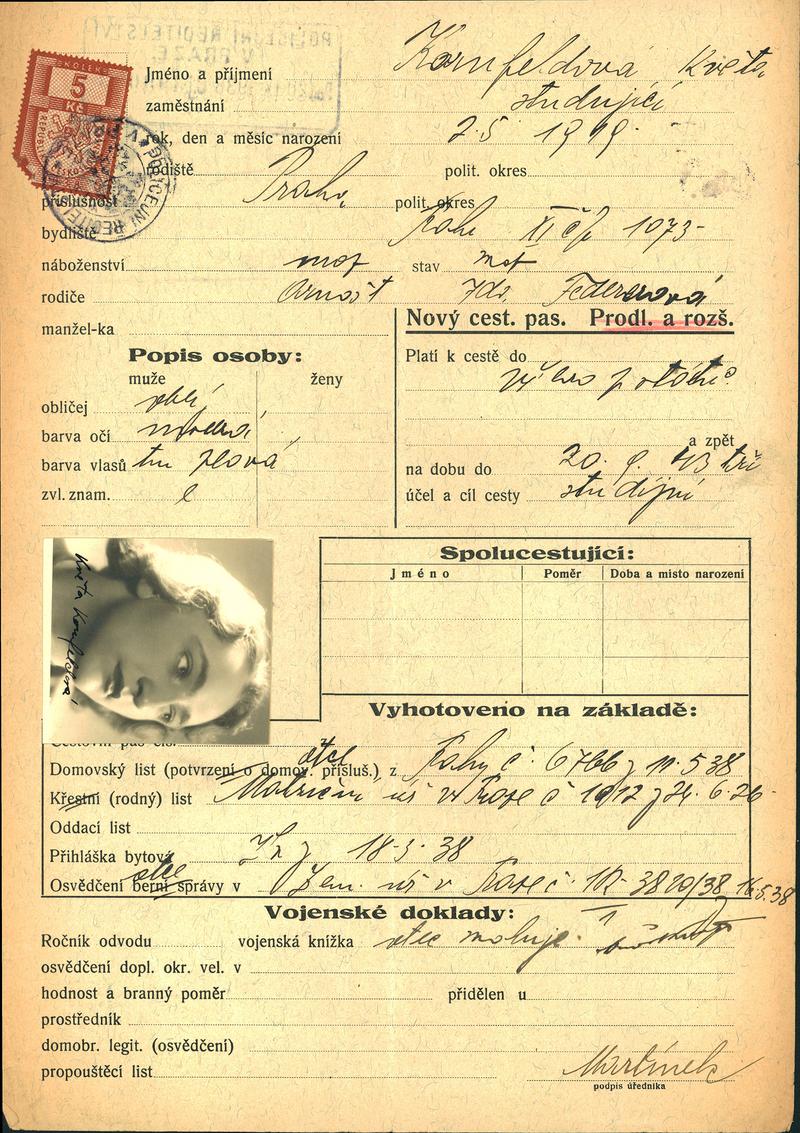 KOLEK
5
Kč
Jméno a příjmení Kornfeldová Květa
zaměstnání studující
rok, den a měsíc narození 2.5 1919
rodiště polit. okres
příslušnost Praha polit. okres
bydliště Praha XI čp 1073
náboženství stav
rodiče Arnošt Ida Federerová
manžel-ka
Nový cest. pas. Prodl. a rozš.
Popis osoby:
muže ženy
obličej
barva očí modrá
barva vlasů tm plavá
zvl. znam.
Platí k cestě do
a zpět
na dobu do 20. 43 tří
účel a cíl cesty studijní
Květa Kornfeldová
Spolucestující:
Jméno Poměr Doba a místo narození
Vyhotoveno na základě:
Cestovní pas čís.
otec
Domovský list (potvrzení o domov. přísluš.) z Prahy č. 6766 z 11.5 38
Křestní (rodný) list Matriční úř v Praze č 1012 z 24. 6. 26
Oddací list
Přihláška bytová 18-3. 38
otce
Osvědčení berní správy v Zem. úř v Praze č. 3820/38 16.5.38
Vojenské doklady:
Ročník odvodu vojenská knížka otec
osvědčení dopl. okr. vel. v
hodnost a branný poměr přidělen u
prostředník
domobr. legit. (osvědčení)
propouštěcí list Martínek
podpis úředníka